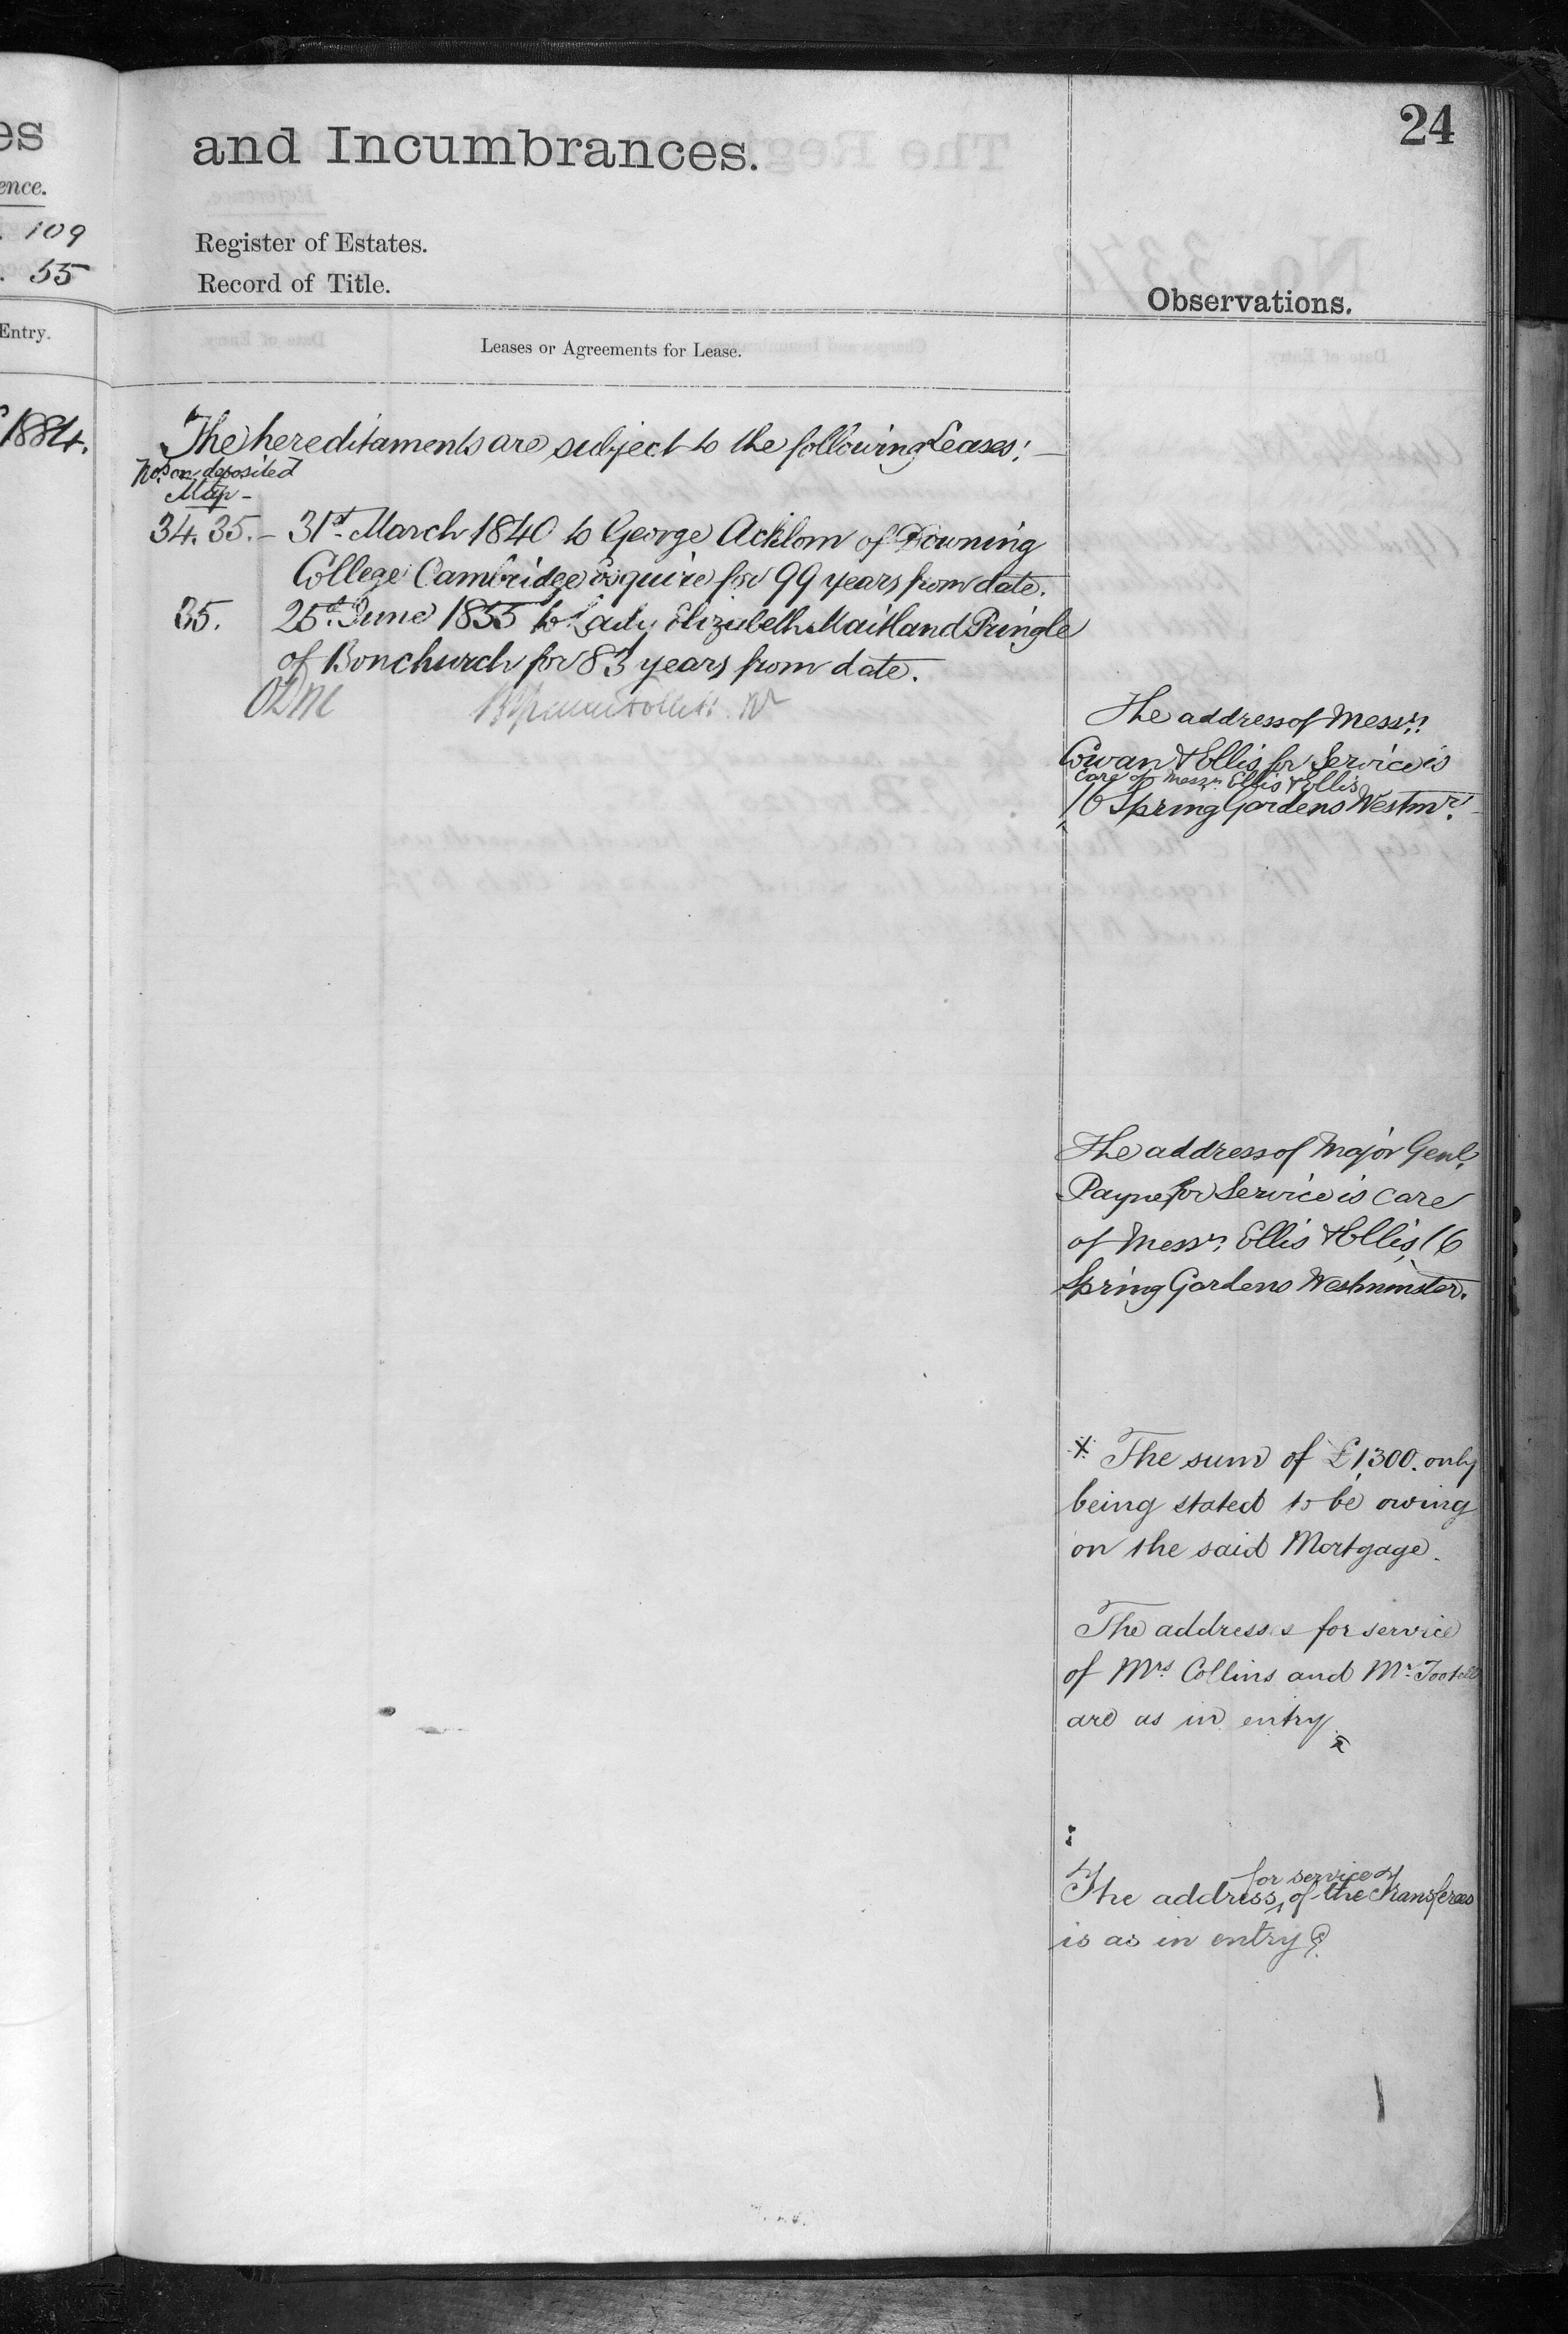 es
ence.
. 109
. 55
Entry.
1884.
24
and Incumbrances.
Register of Estates.
Record of Title.
Observations.
Leases or Agreements for Lease.
The hereditaments are subject to the following Leases:—
Nos. on deposited
Map—
34. 35. – 31st March 1840 to George Acklom of Downing
College Cambridge Esquire for 99 years from date.
35. 25th June 1855 to Lady Elizabeth Maitland Pringle
of Bonchurch for 83 years from date.
The address of Messrs.
Cowan & Ellis for Service is
care of Messrs. Ellis & Ellis
16 Spring Gardens Westmr.
The address of Major Genl.
Payne for Service is care
of Messrs. Ellis & Ellis, 16
Spring Gardens Westminster.
* The sum of £1,300. only
being stated to be owing
on the said Mortgage.
The addresses for service
of Mrs Collins and Mr. Tootell
are as in entry.
for service
The address of the Transferees
is as in entry